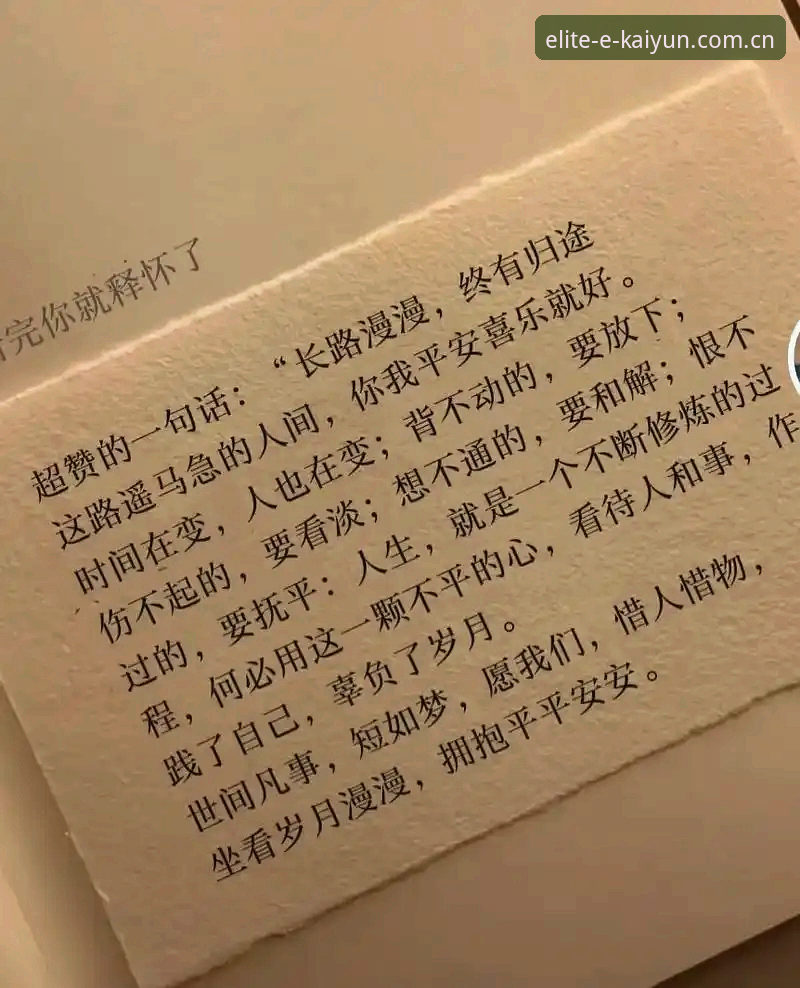 elite-e-kaiyun.com.cn
完你就释怀了
超赞的一句话：“长路漫漫，终有归途
这路遥马急的人间，你我平安喜乐就好。
时间在变，人也在变；背不动的，要放下；
伤不起的，要看淡；想不通的，要和解；恨不
过的，要抚平：人生，就是一个不断修炼的过
程，何必用这一颗不平的心，看待人和事，作
践了自己，辜负了岁月。
世间凡事，短如梦，愿我们，惜人惜物，
坐看岁月漫漫，拥抱平平安安。